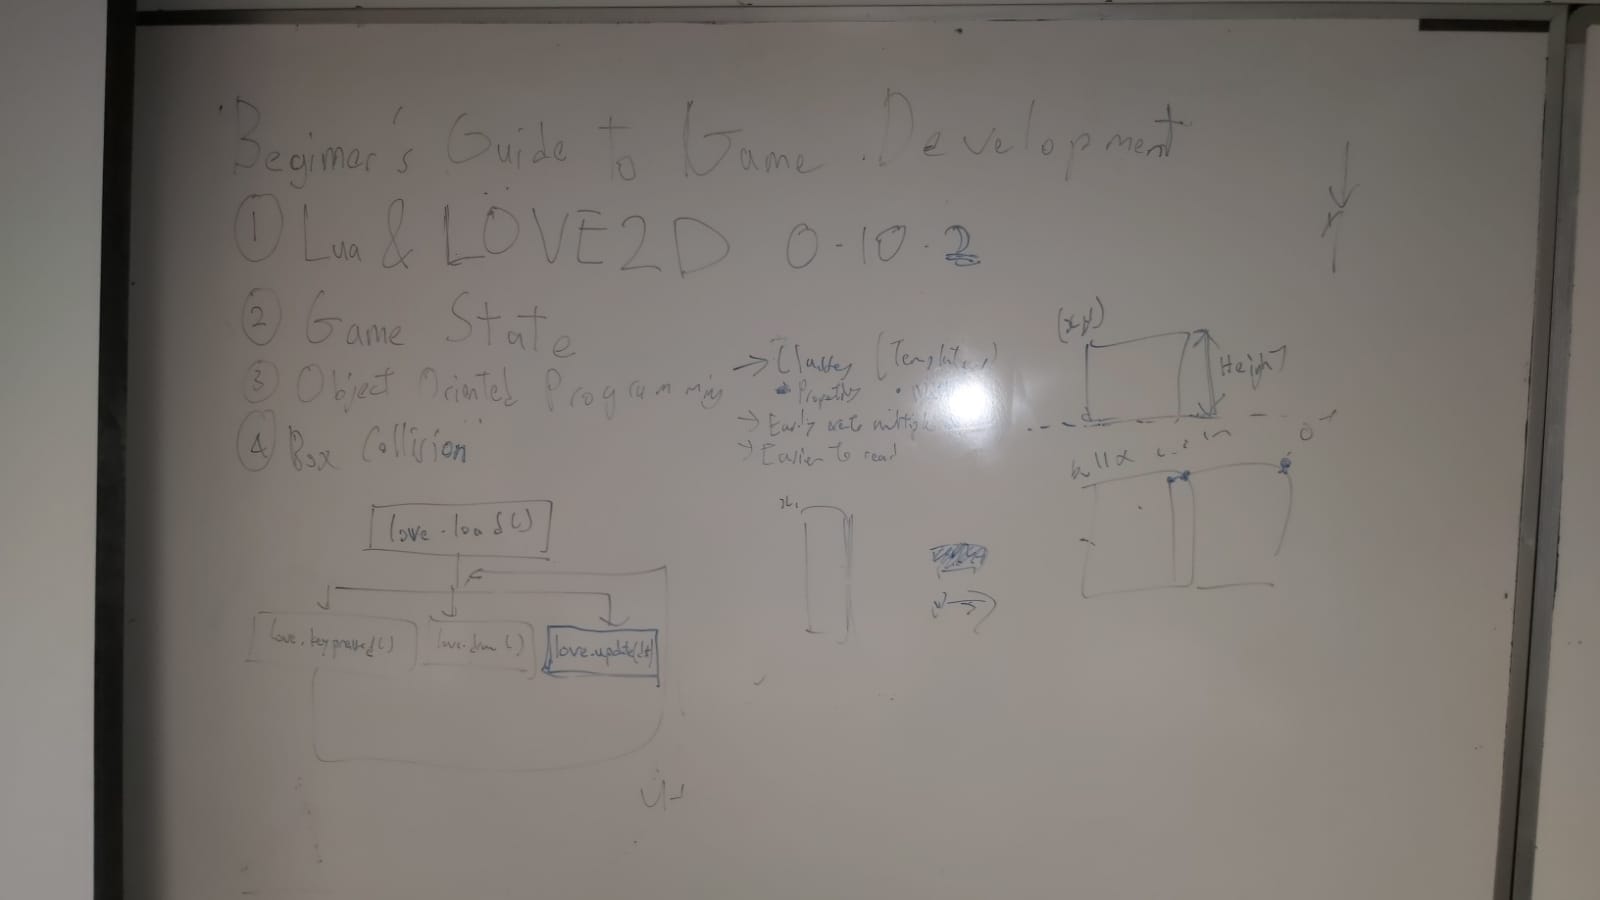 Beginner's Guide to Game Development
① Lua & LOVE2D 0.10.2
② Game State
③ Object Oriented Programming
④ Box Collision
→ Classes (Templates)
• Properties •
→ Easily create multiple
→ Easier to read
(x,y)
Height
love.load()
love.keypressed()
love.draw()
love.update(dt)